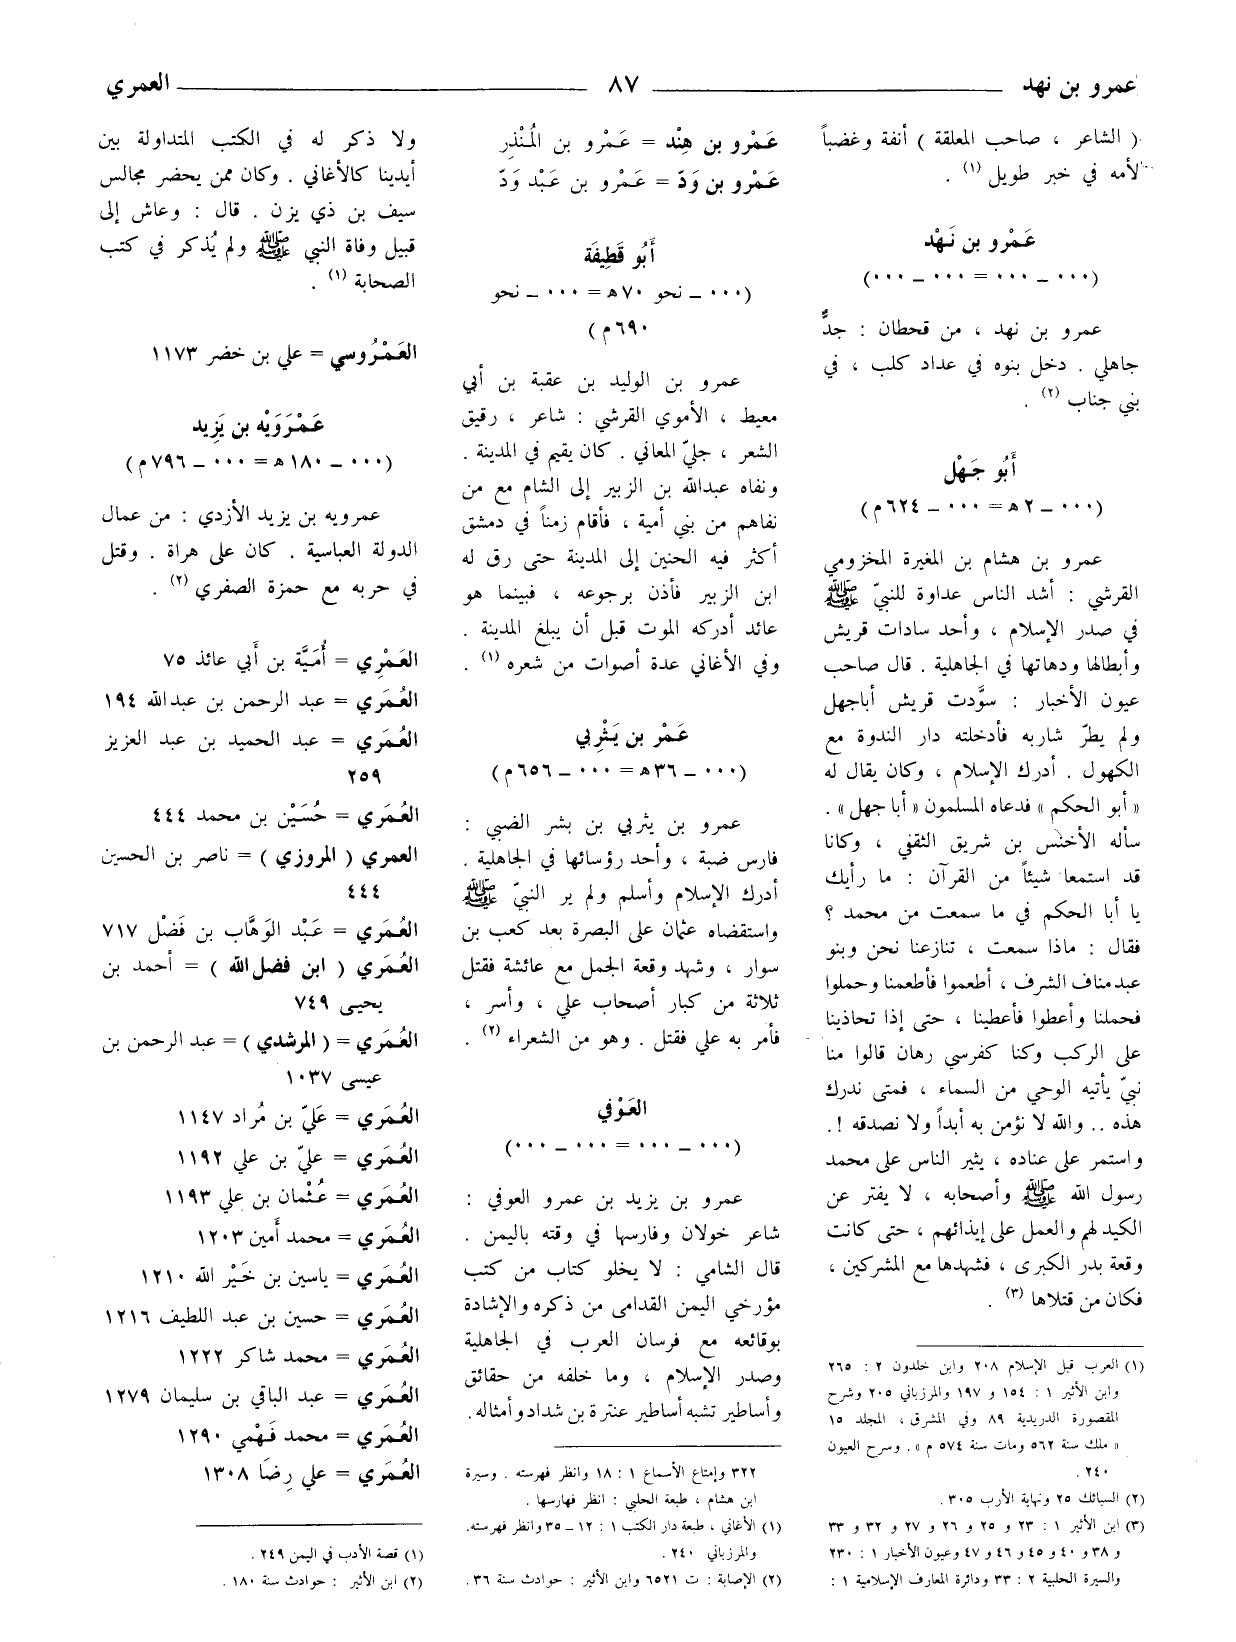 عمرو بن نهد
٨٧
العمري
( الشاعر ، صاحب المعلقة ) أنفة وغضباً
لأمه في خبر طويل (١) .
عَمْرو بن نَهْد
(٠٠٠ ــ ٠٠٠ = ٠٠٠ ــ ٠٠٠)
عمرو بن نهد ، من قحطان : جدٌّ
جاهلي . دخل بنوه في عداد كلب ، في
بني جناب (٢) .
أَبُو جَهْل
(٠٠٠ ــ ٢ هـ = ٠٠٠ ــ ٦٢٤ م)
عمرو بن هشام بن المغيرة المخزومي
القرشي : أشد الناس عداوة للنبيّ ﷺ
في صدر الإسلام ، وأحد سادات قريش
وأبطالها ودهاتها في الجاهلية . قال صاحب
عيون الأخبار : سوَّدت قريش أباجهل
ولم يطرّ شاربه فأدخلته دار الندوة مع
الكهول . أدرك الإسلام ، وكان يقال له
« أبو الحكم » فدعاه المسلمون « أبا جهل » .
سأله الأخنس بن شريق الثقفي ، وكانا
قد استمعا شيئاً من القرآن : ما رأيك
يا أبا الحكم في ما سمعت من محمد ؟
فقال : ماذا سمعت ، تنازعنا نحن وبنو
عبد مناف الشرف ، أطعموا فأطعمنا وحملوا
فحملنا وأعطوا فأعطينا ، حتى إذا تحاذينا
على الركب وكنا كفرسي رهان قالوا منا
نبيّ يأتيه الوحي من السماء ، فمتى ندرك
هذه .. والله لا نؤمن به أبداً ولا نصدقه !.
واستمر على عناده ، يثير الناس على محمد
رسول الله ﷺ وأصحابه ، لا يفتر عن
الكيد لهم والعمل على إيذائهم ، حتى كانت
وقعة بدر الكبرى ، فشهدها مع المشركين ،
فكان من قتلاها (٣) .
(١) العرب قبل الإسلام ٢٠٨ وابن خلدون ٢ : ٢٦٥
وابن الأثير ١ : ١٥٤ و ١٩٧ والمرزباني ٢٠٥ وشرح
المقصورة الدريدية ٨٩ وفي المشرق ، المجلد ١٥
« ملك سنة ٥٦٢ ومات سنة ٥٧٤ م » . وسرح العيون
٢٤٠ .
(٢) السبائك ٢٥ ونهاية الأرب ٣٠٥ .
(٣) ابن الأثير ١ : ٢٣ و ٢٥ و ٢٦ و ٢٧ و ٣٢ و ٣٣
و ٣٨ و ٤٠ و ٤٥ و ٤٦ و ٤٧ وعيون الأخبار ١ : ٢٣٠
والسيرة الحلبية ٢ : ٣٣ ودائرة المعارف الإسلامية ١ :
عَمْرو بن هِنْد = عَمْرو بن المُنْذِر
عَمْرو بن وَدّ = عَمْرو بن عَبْد وَدّ
أَبُو قَطِيفَة
(٠٠٠ ــ نحو ٧٠ هـ = ٠٠٠ ــ نحو
٦٩٠ م)
عمرو بن الوليد بن عقبة بن أبي
معيط ، الأموي القرشي : شاعر ، رقيق
الشعر ، جليّ المعاني . كان يقيم في المدينة .
ونفاه عبدالله بن الزبير إلى الشام مع من
نفاهم من بني أمية ، فأقام زمناً في دمشق
أكثر فيه الحنين إلى المدينة حتى رق له
ابن الزبير فأذن برجوعه ، فبينما هو
عائد أدركه الموت قبل أن يبلغ المدينة .
وفي الأغاني عدة أصوات من شعره (١) .
عَمْر بن يَثْرِبي
(٠٠٠ ــ ٣٦ هـ = ٠٠٠ ــ ٦٥٦ م)
عمرو بن يثربي بن بشر الضبي :
فارس ضبة ، وأحد رؤسائها في الجاهلية .
أدرك الإسلام وأسلم ولم ير النبيّ ﷺ
واستقضاه عثمان على البصرة بعد كعب بن
سوار ، وشهد وقعة الجمل مع عائشة فقتل
ثلاثة من كبار أصحاب علي ، وأسر ،
فأمر به علي فقتل . وهو من الشعراء (٢) .
العَوْفي
(٠٠٠ ــ ٠٠٠ = ٠٠٠ ــ ٠٠٠)
عمرو بن يزيد بن عمرو العوفي :
شاعر خولان وفارسها في وقته باليمن .
قال الشامي : لا يخلو كتاب من كتب
مؤرخي اليمن القدامى من ذكره والإشادة
بوقائعه مع فرسان العرب في الجاهلية
وصدر الإسلام ، وما خلفه من حقائق
وأساطير تشبه أساطير عنترة بن شداد وأمثاله.
٣٢٢ وإمتاع الأسماع ١ : ١٨ وانظر فهرسته . وسيرة
ابن هشام ، طبعة الحلبي : انظر فهارسها .
(١) الأغاني ، طبعة دار الكتب ١ : ١٢ ــ ٣٥ وانظر فهرسته.
والمرزباني ٢٤٠ .
(٢) الإصابة : ت ٦٥٢١ وابن الأثير : حوادث سنة ٣٦ .
ولا ذكر له في الكتب المتداولة بين
أيدينا كالأغاني . وكان ممن يحضر مجالس
سيف بن ذي يزن . قال : وعاش إلى
قبيل وفاة النبي ﷺ ولم يُذكر في كتب
الصحابة (١) .
العَمْرُوسي = علي بن خضر ١١٧٣
عَمْرَوَيْه بن يَزِيد
(٠٠٠ ــ ١٨٠ هـ = ٠٠٠ ــ ٧٩٦ م)
عمرويه بن يزيد الأزدي : من عمال
الدولة العباسية . كان على هراة . وقتل
في حربه مع حمزة الصفري (٢) .
العَمْرِي = أُمَيَّة بن أَبي عائذ ٧٥
العُمَري = عبد الرحمن بن عبدالله ١٩٤
العُمَري = عبد الحميد بن عبد العزيز
٢٥٩
العُمَري = حُسَيْن بن محمد ٤٤٤
العمري ( المروزي ) = ناصر بن الحسين
٤٤٤
العُمَري = عَبْد الوَهَّاب بن فَضْل ٧١٧
العُمَري ( ابن فضل الله ) = أحمد بن
يحيى ٧٤٩
العُمَري = ( المرشدي ) = عبد الرحمن بن
عيسى ١٠٣٧
العُمَري = عَليّ بن مُراد ١١٤٧
العُمَري = عليّ بن علي ١١٩٢
العُمَري = عُثْمان بن علي ١١٩٣
العُمَري = محمد أَمين ١٢٠٣
العُمَري = ياسين بن خَيْر الله ١٢١٠
العُمَري = حسين بن عبد اللطيف ١٢١٦
العُمَري = محمد شاكر ١٢٢٢
العُمَري = عبد الباقي بن سليمان ١٢٧٩
العُمَري = محمد فَهْمي ١٢٩٠
العُمَري = علي رِضَا ١٣٠٨
(١) قصة الأدب في اليمن ٢٤٩ .
(٢) ابن الأثير : حوادث سنة ١٨٠ .